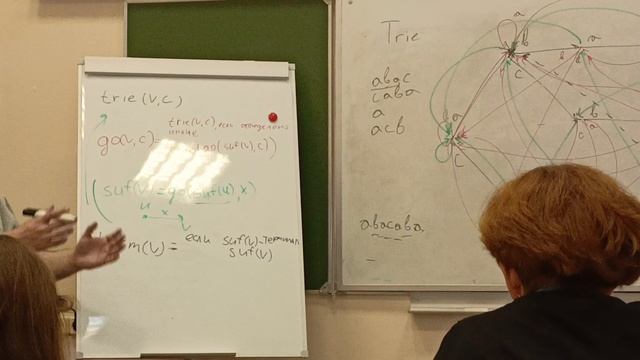 trie(v,c)
go(v,c)=
trie(v,c), если определено
иначе
go(suf(v),c)
suf(v)=go(suf(u),x)
u x
v
m(v)=
если suf(v)-терминал
suf(v)
Trie
abac
caba
a
acb
abacaba